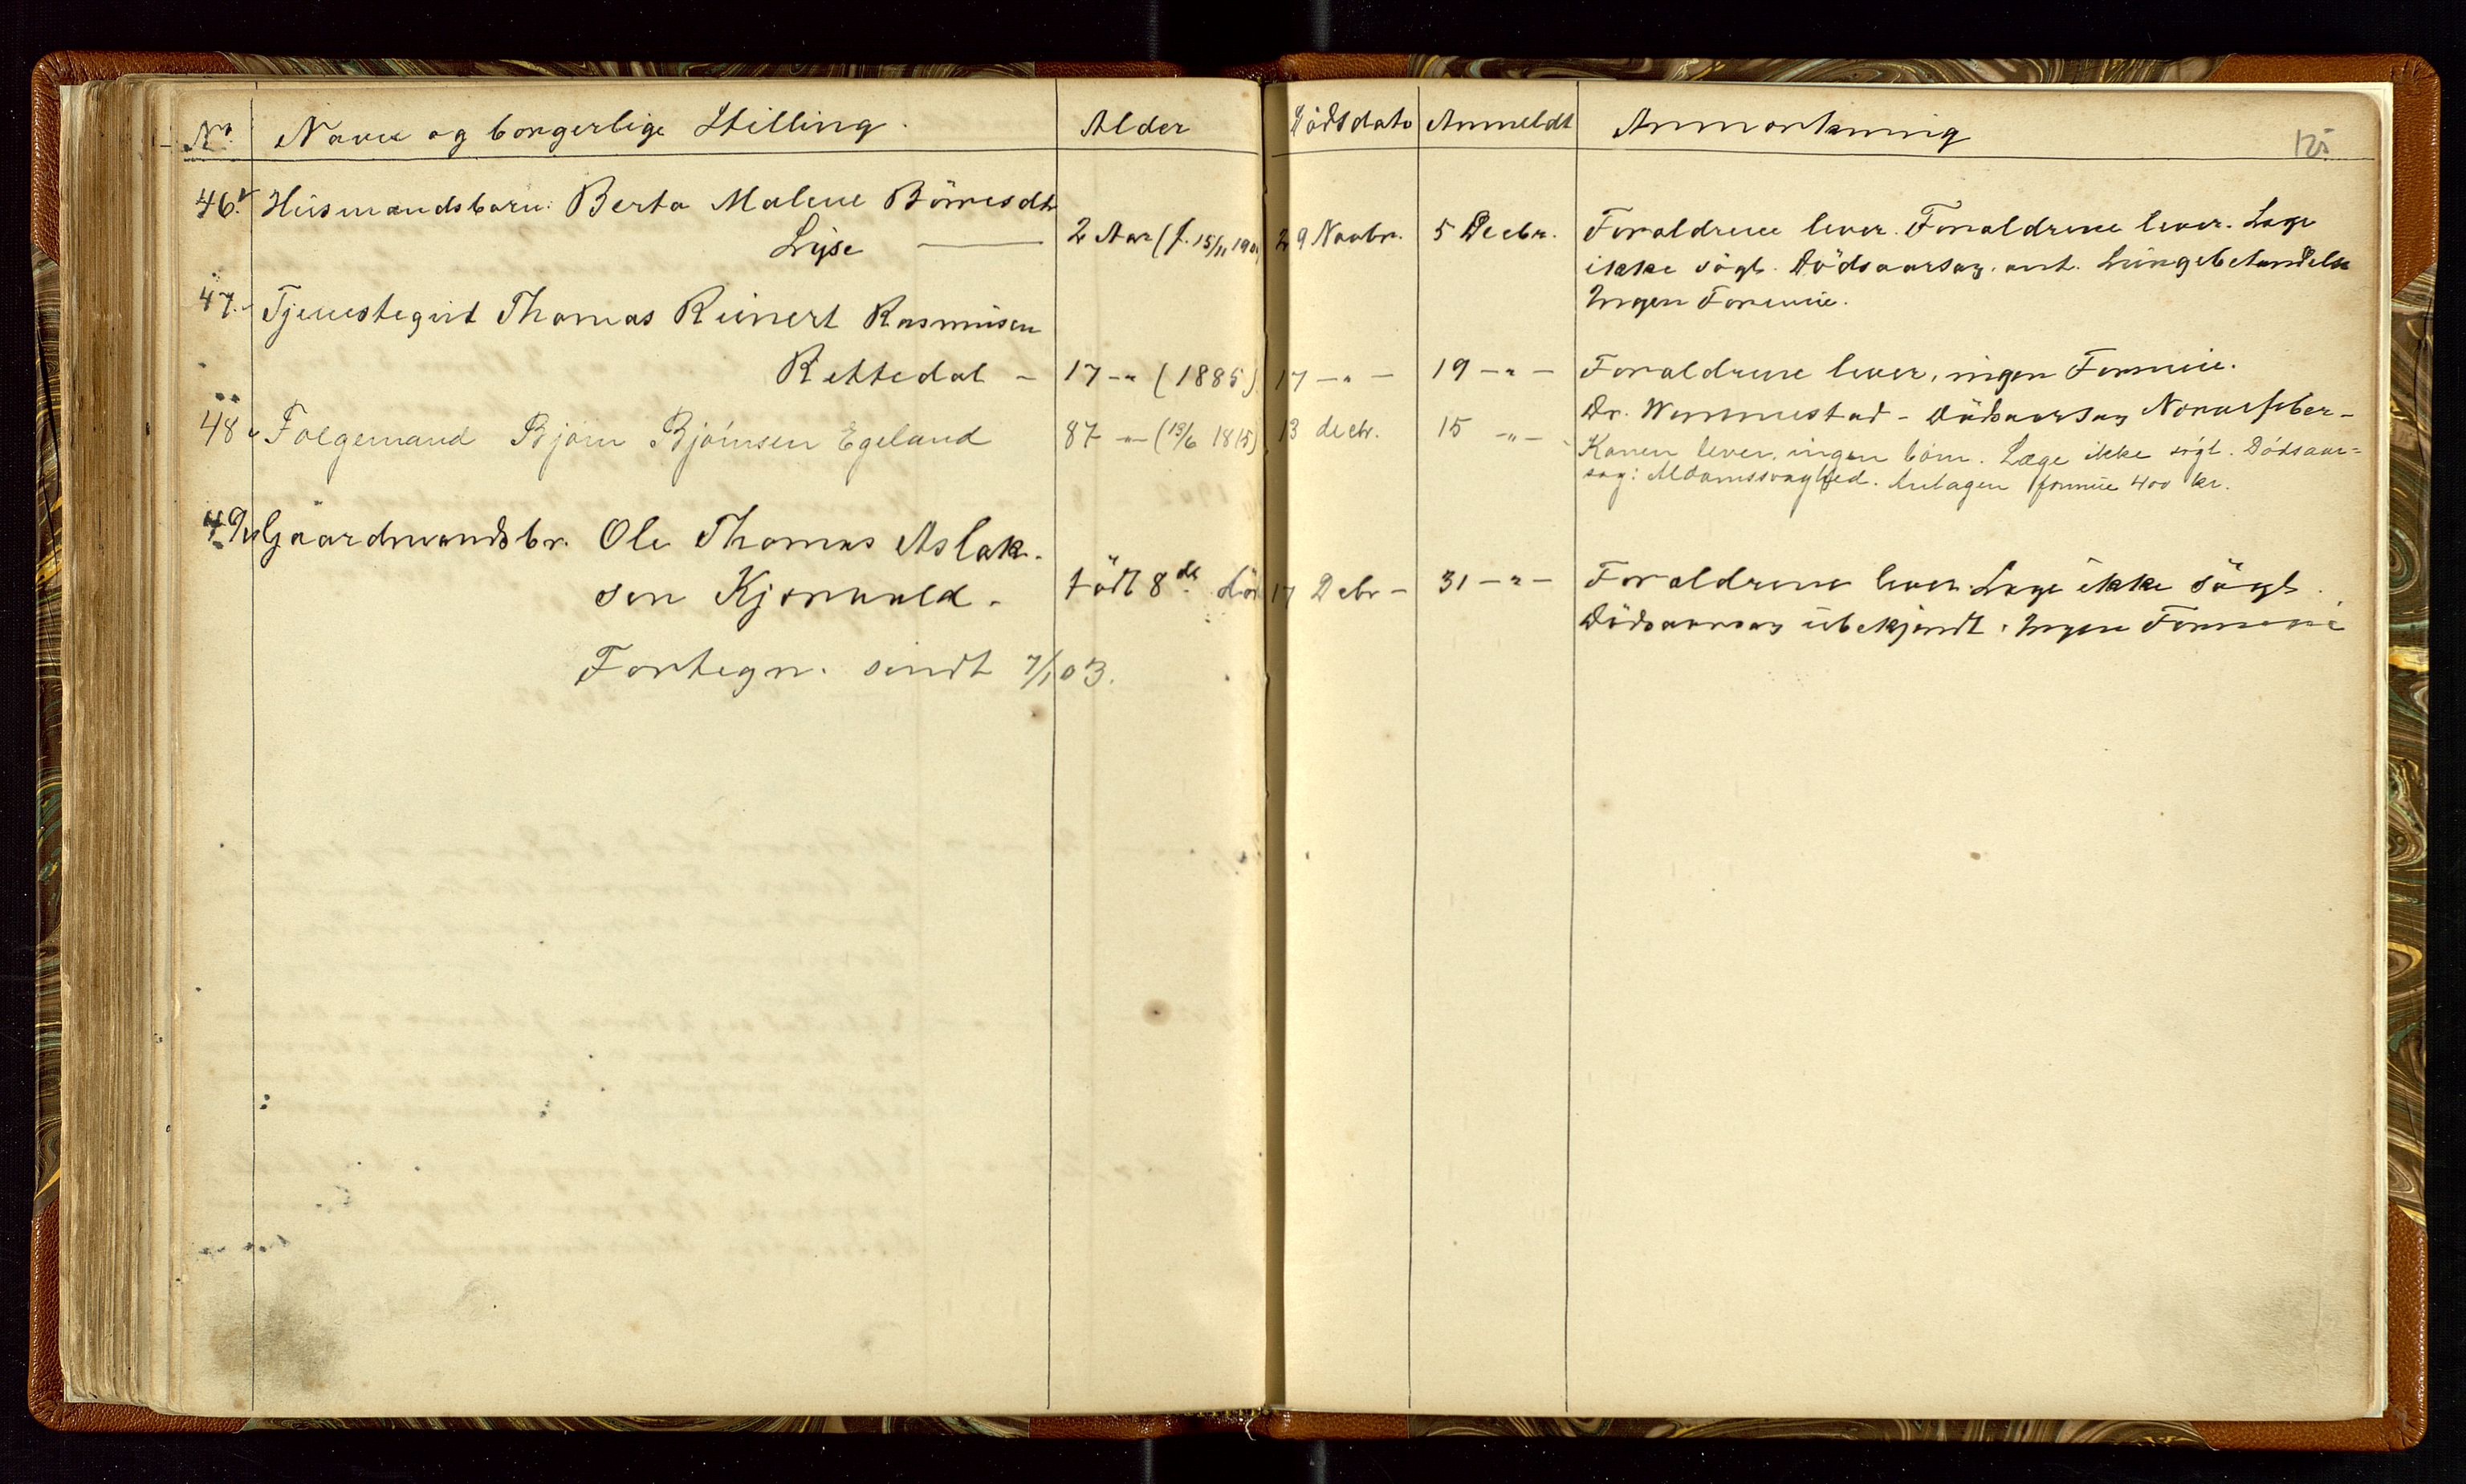 No. Navn og borgerlige Stilling. Alder Dödsdato Anmeldt Anmærkning 125
46. Husmandsbarn: Berta Malene Börresdtr
Lyse 2 Aar (f. 15/11 190 29 Novbr. 5 Decbr. Foraldrene lever. Foraldrene lever. Læge
ikke sögt. Dödsaarsag. ant. Lungebetendelse
Ingen Formue.
47. Tjenestegut Thomas Reinert Rasmusen
Rettedal – 17 –"– (1885) 17 –"– 19 –"– Foraldrene lever, ingen Formue.
Dr. Wummestad – Dödsaarsag Nervefeber –
48 Folgemand Bjørn Bjørnsen Egeland 87 –"– (13/6 1815) 13 decbr. 15 –"–
Konen lever, ingen børn. Læge ikke søgt. Dødsaar=
sag: Alderdomssvaghed. Antagen formue 400 kr.
49 Gaardmandsbr. Ole Thomas Aslak-
sen Kjoravold. födt 8de dö 17 Debr – 31 –"– Foraldrene lever. Læge ikke sögt.
Dödsaarsag übekjendt. Ingen Formue
Fortegn. sendt 7/1 03.